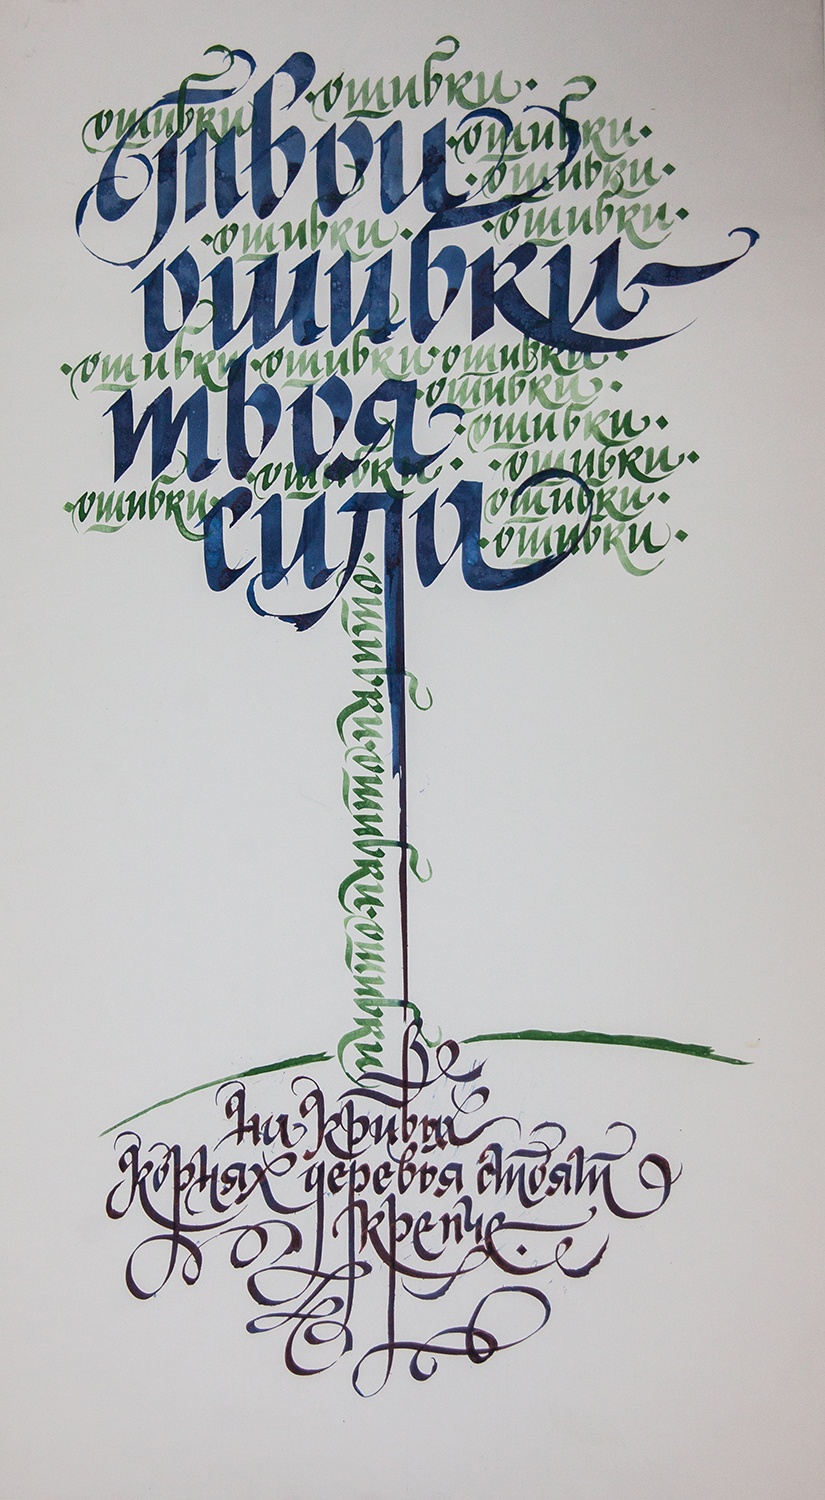 ошибки
ошибки
Твои
ошибки
ошибки
ошибки
ошибки
ошибки –
ошибки · ошибки · ошибки
твоя
ошибки
ошибки
ошибки
ошибки
ошибки
ошибки
сила
ошибки
ошибки · ошибки · ошибки
На кривых
корнях деревья стоят
крепче.